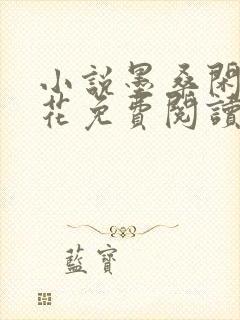 小說墨桑閑
花免費閱讀
藍寶